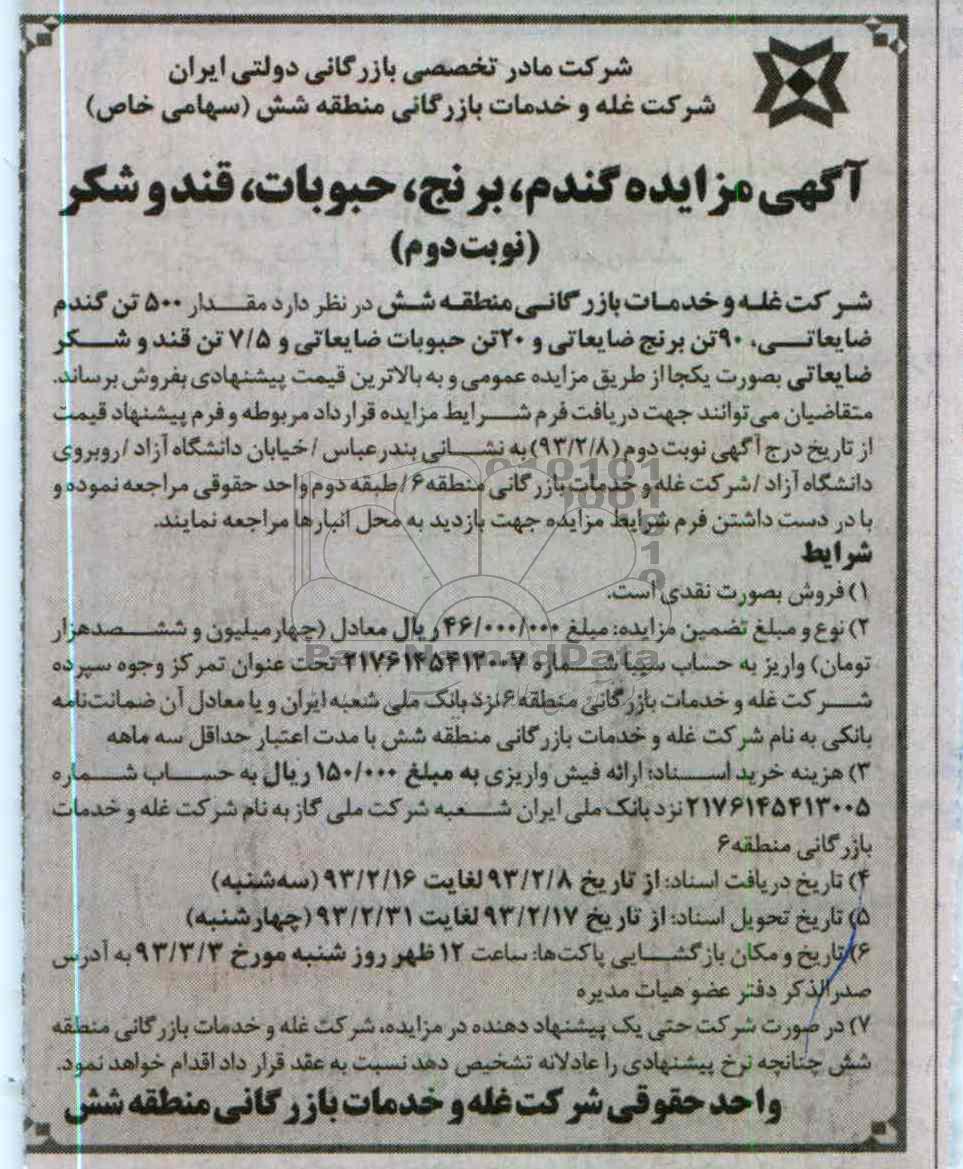 شرکت مادر تخصصی بازرگانی دولتی ایران
شرکت غله و خدمات بازرگانی منطقه شش (سهامی خاص)
آگهی مزایده گندم، برنج، حبوبات، قند و شکر
(نوبت دوم)
شرکت غله و خدمات بازرگانی منطقه شش در نظر دارد مقدار ۵۰۰ تن گندم
ضایعاتی، ۹۰تن برنج ضایعاتی و ۲۰تن حبوبات ضایعاتی و ۷/۵ تن قند و شکر
ضایعاتی بصورت یکجا از طریق مزایده عمومی و به بالاترین قیمت پیشنهادی بفروش برساند.
متقاضیان می‌توانند جهت دریافت فرم شرایط مزایده قرارداد مربوطه و فرم پیشنهاد قیمت
از تاریخ درج آگهی نوبت دوم (۹۳/۲/۸) به نشانی بندرعباس /خیابان دانشگاه آزاد /روبروی
دانشگاه آزاد /شرکت غله و خدمات بازرگانی منطقه۶/طبقه دوم واحد حقوقی مراجعه نموده و
با در دست داشتن فرم شرایط مزایده جهت بازدید به محل انبارها مراجعه نمایند.
شرایط
۱) فروش بصورت نقدی است.
۲) نوع و مبلغ تضمین مزایده: مبلغ ۴۶/۰۰۰/۰۰۰ ریال معادل (چهارمیلیون و ششصدهزار
تومان) واریز به حساب سیبا شماره ۲۱۷۶۱۴۵۴۱۲۰۰۷ تحت عنوان تمرکز وجوه سپرده
شرکت غله و خدمات بازرگانی منطقه ۶ نزد بانک ملی شعبه ایران و یا معادل آن ضمانت‌نامه
بانکی به نام شرکت غله و خدمات بازرگانی منطقه شش با مدت اعتبار حداقل سه ماهه
۳) هزینه خرید اسناد: ارائه فیش واریزی به مبلغ ۱۵۰/۰۰۰ ریال به حساب شماره
۲۱۷۶۱۴۵۴۱۳۰۰۵ نزد بانک ملی ایران شعبه شرکت ملی گاز به نام شرکت غله و خدمات
بازرگانی منطقه۶
۴) تاریخ دریافت اسناد: از تاریخ ۹۳/۲/۸ لغایت ۹۳/۲/۱۶ (سه‌شنبه)
۵) تاریخ تحویل اسناد: از تاریخ ۹۳/۲/۱۷ لغایت ۹۳/۲/۳۱ (چهارشنبه)
۶) تاریخ و مکان بازگشایی پاکت‌ها: ساعت ۱۲ ظهر روز شنبه مورخ ۹۳/۳/۳ به آدرس
صدرالذکر دفتر عضو هیات مدیره
۷) در صورت شرکت حتی یک پیشنهاد دهنده در مزایده، شرکت غله و خدمات بازرگانی منطقه
شش چنانچه نرخ پیشنهادی را عادلانه تشخیص دهد نسبت به عقد قرار داد اقدام خواهد نمود.
واحد حقوقی شرکت غله و خدمات بازرگانی منطقه شش
ParsNamadData